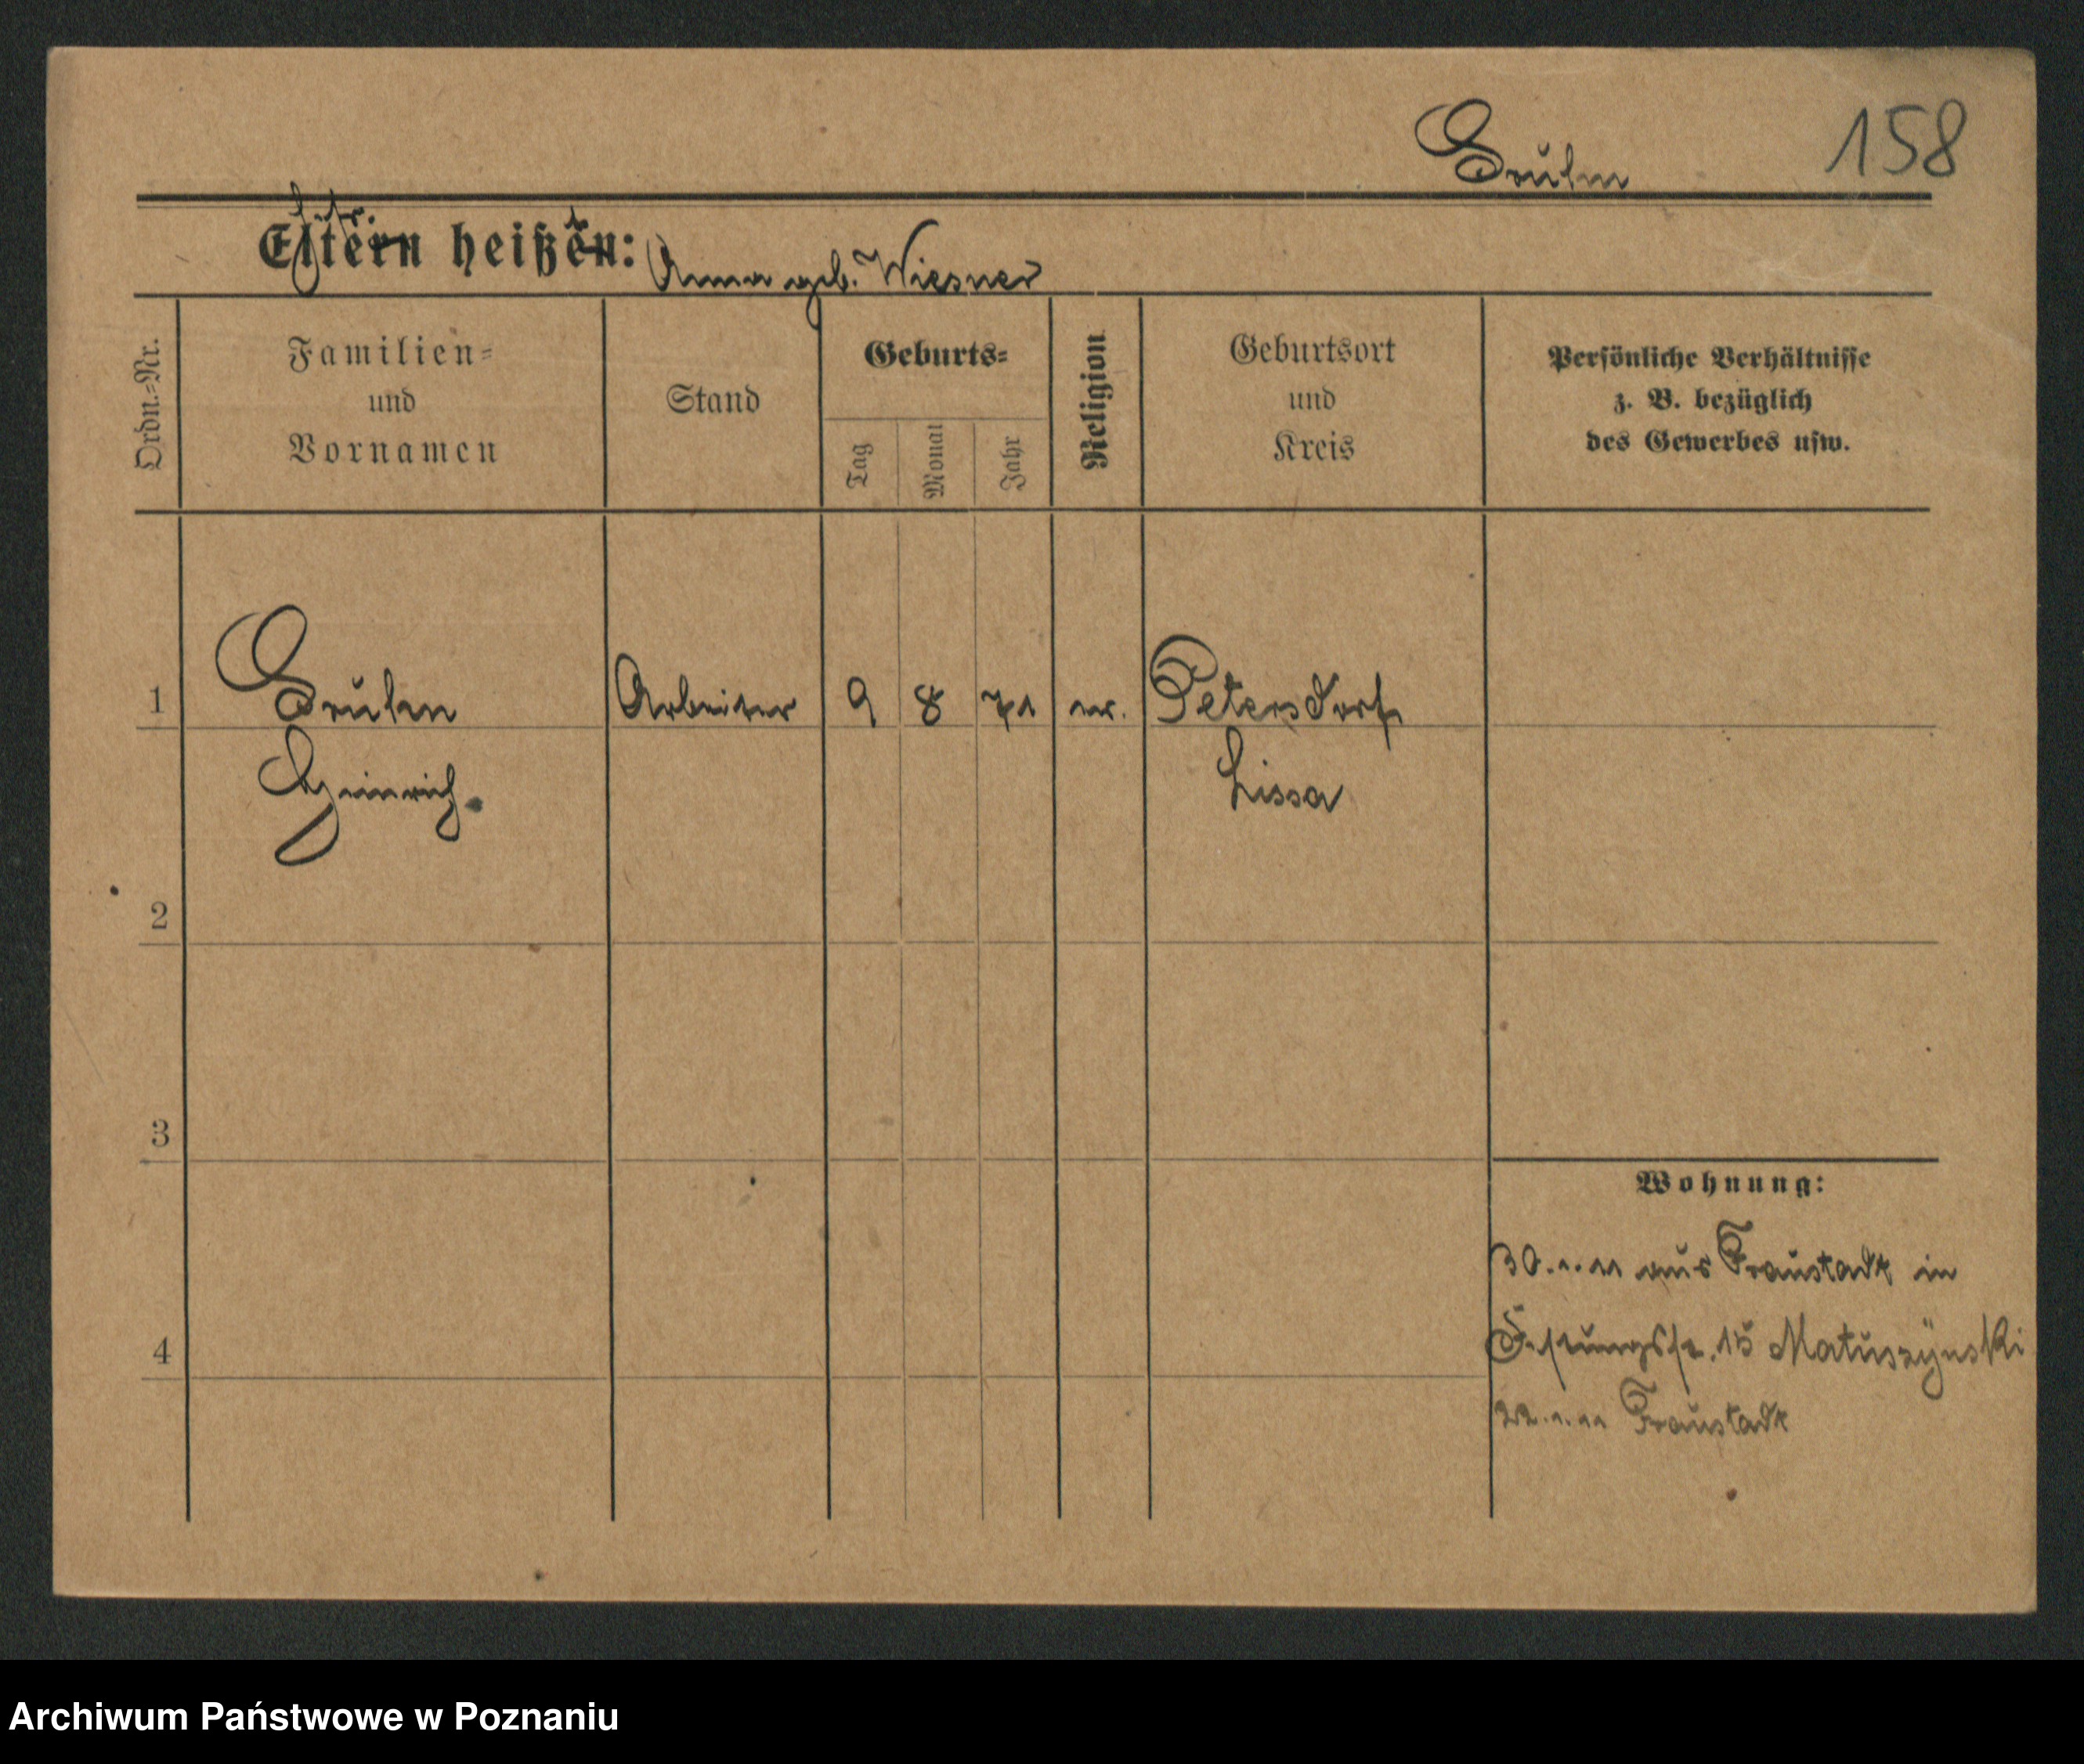 Gruhn 158
Eltern heißen: Ehefr. heißt Anna geb. Wiesner
Ordn.=Nr.
Familien=
und
Vornamen
Stand
Geburts=
Tag
Monat
Jahr
Religion
Geburtsort
und
Kreis
Persönliche Verhältnisse
z. B. bezüglich
des Gewerbes usw.
1 Gruhn Arbeiter 9 8 71 ev. Petersdorf
Heinrich. Lissa
2
3
Wohnung:
30.1.11 aus Fraustadt in
4 Festungsstr. 15 Matuszynski
22.1.11 Fraustadt
Archiwum Państwowe w Poznaniu